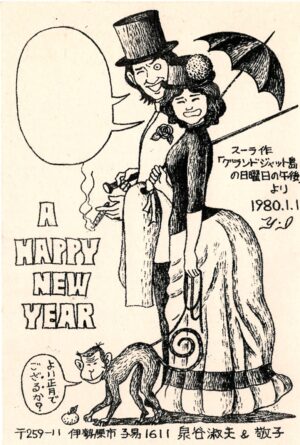 スーラ作
「グランドジャット島
の日曜日の午後
より
1980.1.1
A
HAPPY
NEW
YEAR
よい正月で
ござるか?
〒259-11 伊勢原市子易1611 泉谷淑夫 & 敬子